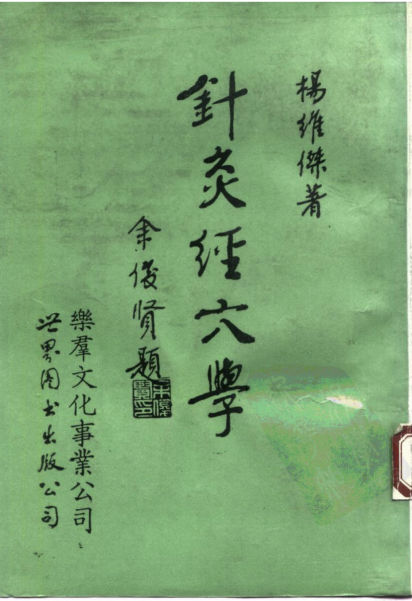 楊維傑著
針灸經穴學
余俊贤題
余俊賢印
樂羣文化事業公司
世界图书出版公司